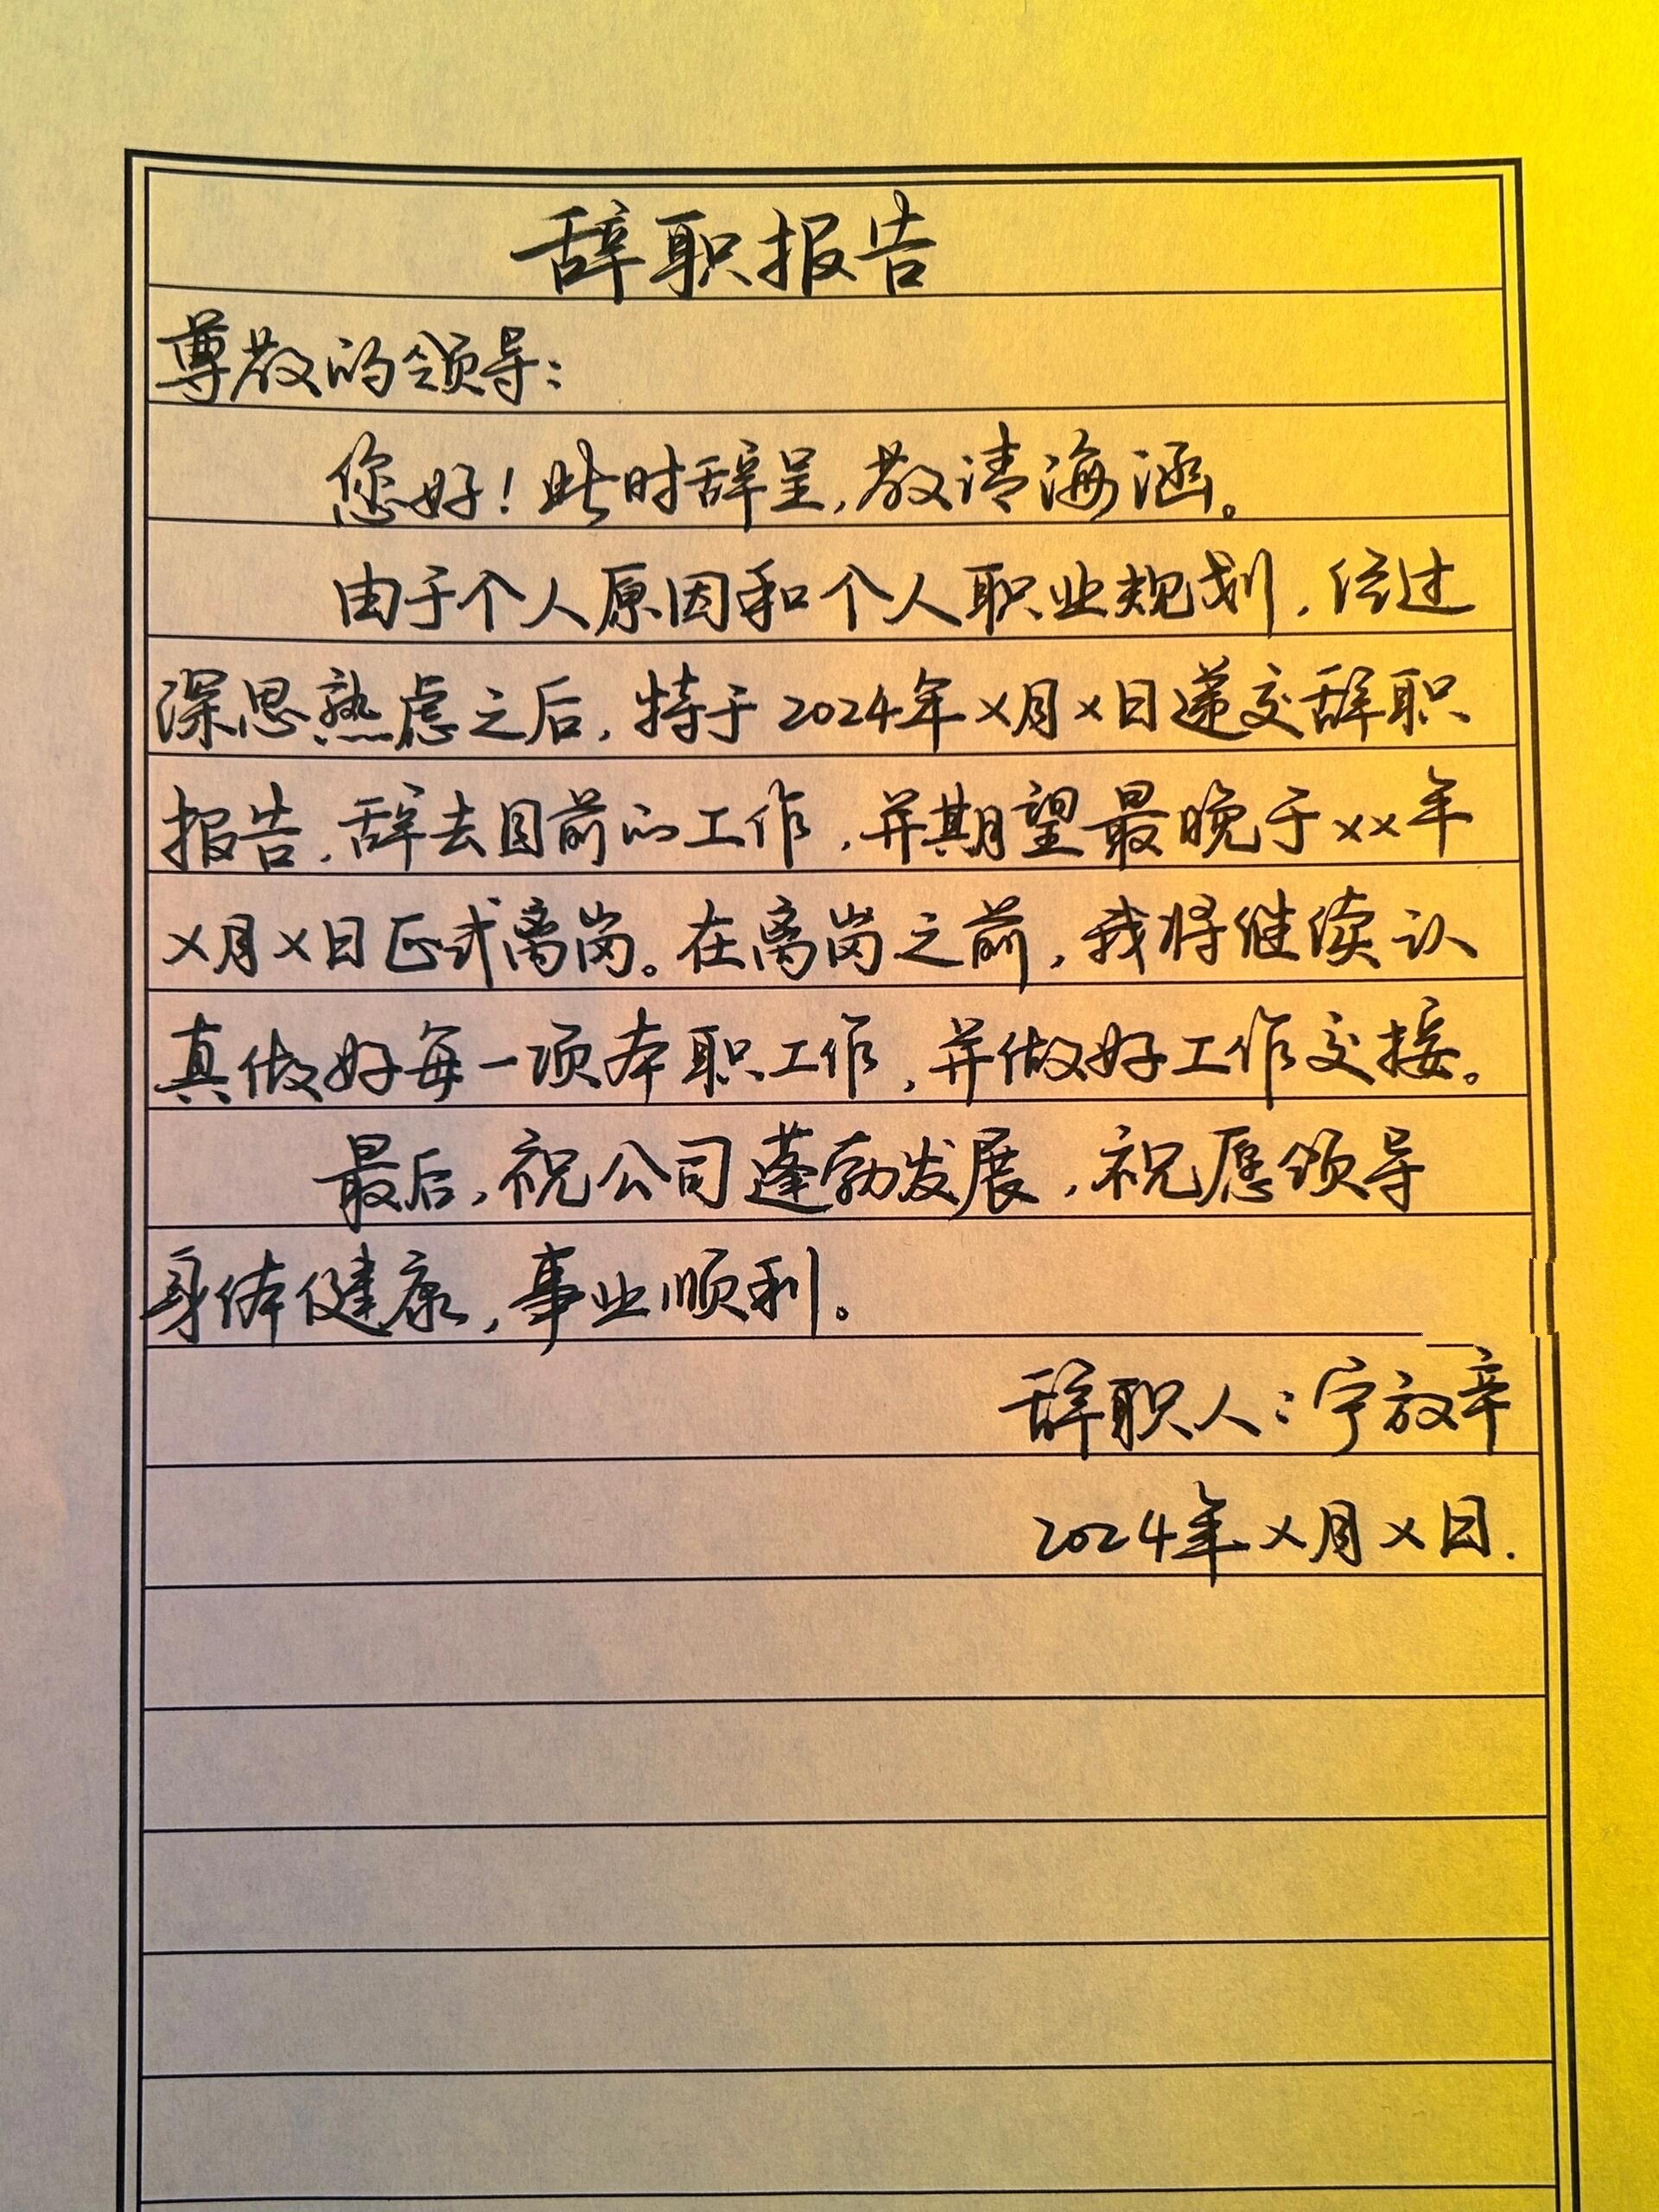 辞职报告
尊敬的领导:
您好!此时辞呈,敬请海涵。
由于个人原因和个人职业规划,经过
深思熟虑之后,特于2024年x月x日递交辞职
报告,辞去目前的工作,并期望最晚于xx年
x月x日正式离岗。在离岗之前,我将继续认
真做好每一项本职工作,并做好工作交接。
最后,祝公司蓬勃发展,祝愿领导
身体健康,事业顺利。
辞职人:宁放辛
2024年x月x日.